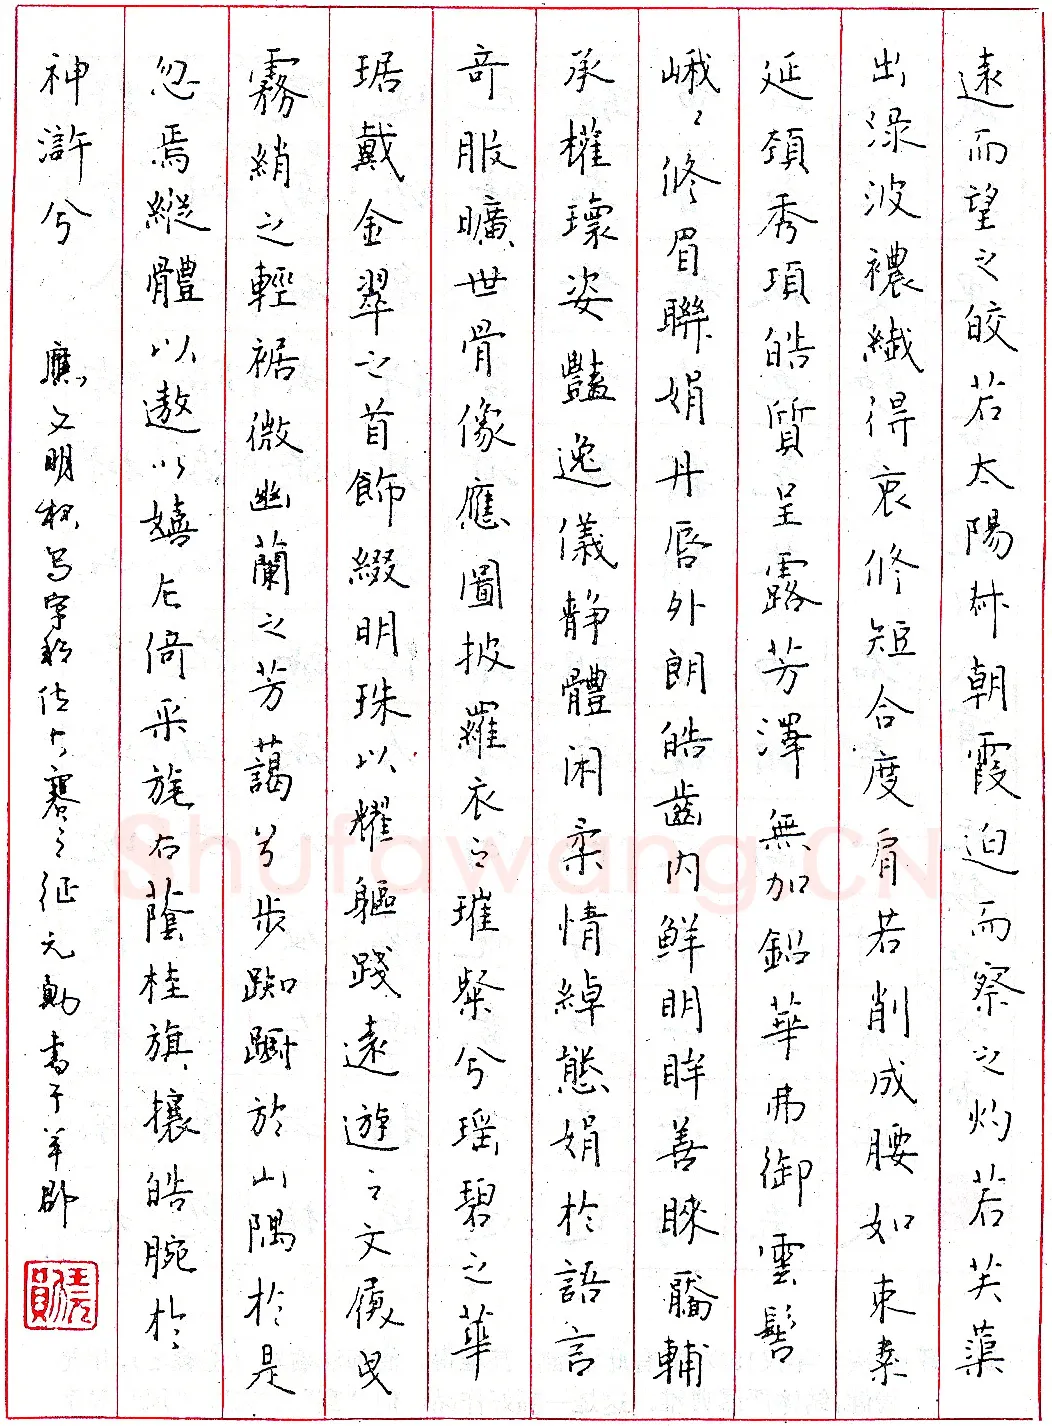 遠而望之皎若太陽升朝霞迫而察之灼若芙蕖
出渌波襛纖得衷修短合度肩若削成腰如束素
延頸秀項皓質呈露芳澤無加鉛華弗御雲髻
峨〻修眉聯娟丹唇外朗皓齒内鮮明眸善睞靨輔
承權瓌姿豔逸儀静體闲柔情綽態娟於語言
奇服曠世骨像應圖披羅衣之璀粲兮瑶碧之華
琚戴金翠之首飾綴明珠以耀軀踐遠遊之文履曳
霧綃之輕裾微幽蘭之芳藹兮步踟躕於山隅於是
忽焉縱體以遨以嬉左倚采旄右蔭桂旗攘皓腕於
神滸兮 應文明杯写字段位大賽之征元勛書于羊郡
Shufawang.CN